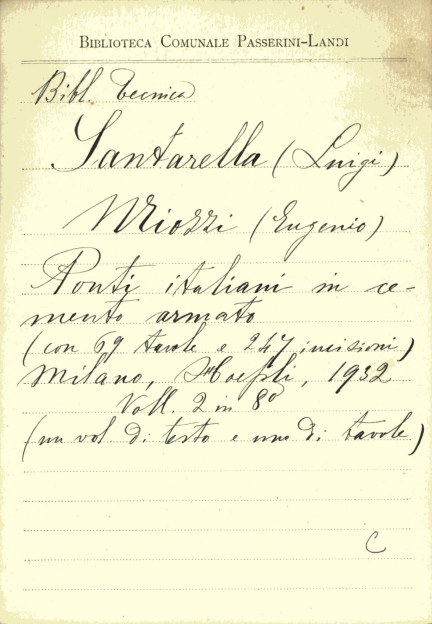 BIBLIOTECA COMUNALE PASSERINI-LANDI
Bibl. Tecnica
Santarella (Luigi)
Miozzi (Eugenio)
Ponti italiani in ce-
mento armato
(con 69 tavole e 247 incisioni)
Milano, Hoepli, 1932
Voll. 2 in 8º
(un vol di testo e uno di tavole)
C